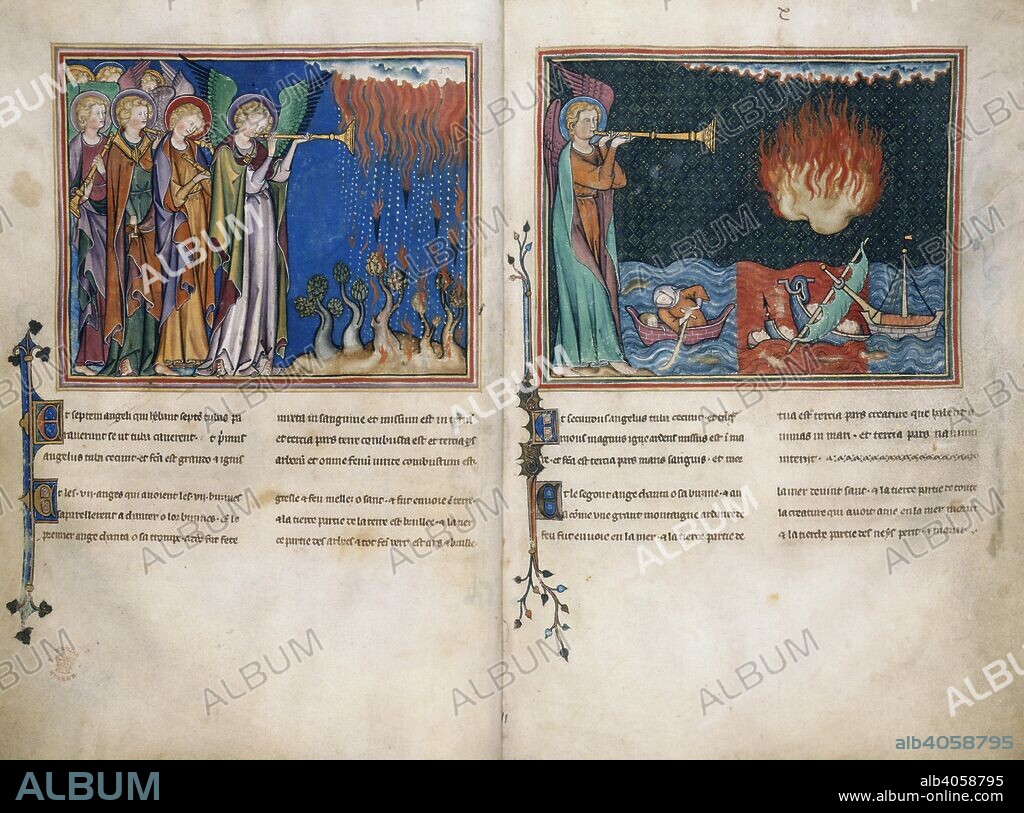 Et septem angeli qui hebunt septe tubas pa
raverunt se ut tuba canerent
angelus tuba cecinit et fca est grando & ignis
mixta in sanguine et missum est in
et tercia pars terre combusta est et tercia ps
arborū et omne fenū viride combustum est
Et les vii anges qui avoient les vii buisines
saparellerent a chanter o lor buisines
premier ange chanta o sa trompe
gresle & feu melle o sanc & fut envoie ē terre
& la tierce partie de la terre est brullee & la tier
ce partie des arbres & tot
Et secundus angelus tuba cecinit et
mons magnus igne ardens missus est in ma
re et fca est tercia pars maris sanguis et mor
tua est tercia pars creature que habebat
animas in mari et tercia pars navium
interiit
Et le segont ange chanta o sa buisine & au
si cōme une grant montaigne ardante de
feu fut envoie en la mer & la tierce partie de
la mer devint sanc & la tierce partie de toute
la creature qui avoit ame en la mer morut
& la tierce partie des
ALBUM
alb4058795
alb4058795
www.album-online.com